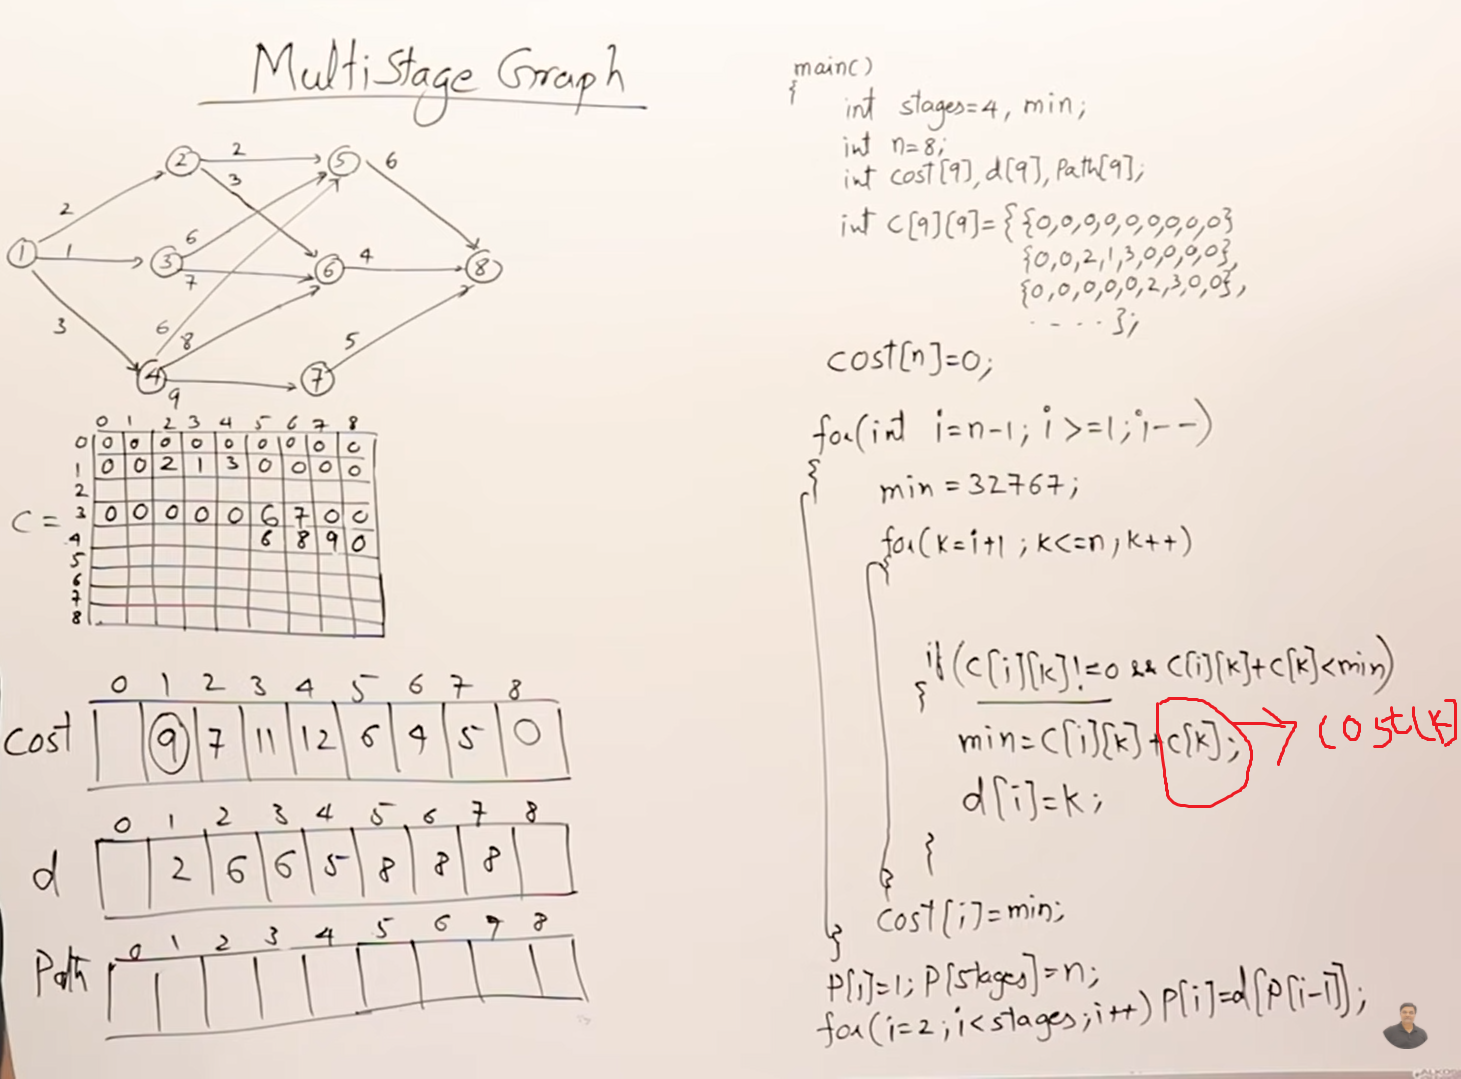 MultiStage Graph
2
2
5
6
2
3
1
1
3
6
7
6
4
8
3
6
8
5
4
9
7
0 1 2 3 4 5 6 7 8
0 0 0 0 0 0 0 0 0 0
1 0 0 2 1 3 0 0 0 0
2
C = 3 0 0 0 0 0 6 7 0 0
4 6 8 9 0
5
6
7
8
0 1 2 3 4 5 6 7 8
Cost 9 7 11 12 6 4 5 0
0 1 2 3 4 5 6 7 8
d 2 6 6 5 8 8 8
0 1 2 3 4 5 6 7 8
Path
main()
{
int stages=4, min;
int n=8;
int cost[9], d[9], Path[9];
int C[9][9]={ {0,0,0,0,0,0,0,0,0}
{0,0,2,1,3,0,0,0,0},
{0,0,0,0,0,2,3,0,0},
. . . . };
cost[n]=0;
for(int i=n-1; i>=1; i--)
{
min = 32767;
for(k=i+1; k<=n; k++)
{
if(C[i][k]!=0 && C[i][k]+C[k]<min)
{
min=C[i][k]+C[k]; → cost[k]
d[i]=k;
}
}
cost[i]=min;
}
P[i]=1; P[stages]=n;
for(i=2; i<stages; i++) P[i]=d[P[i-1]];